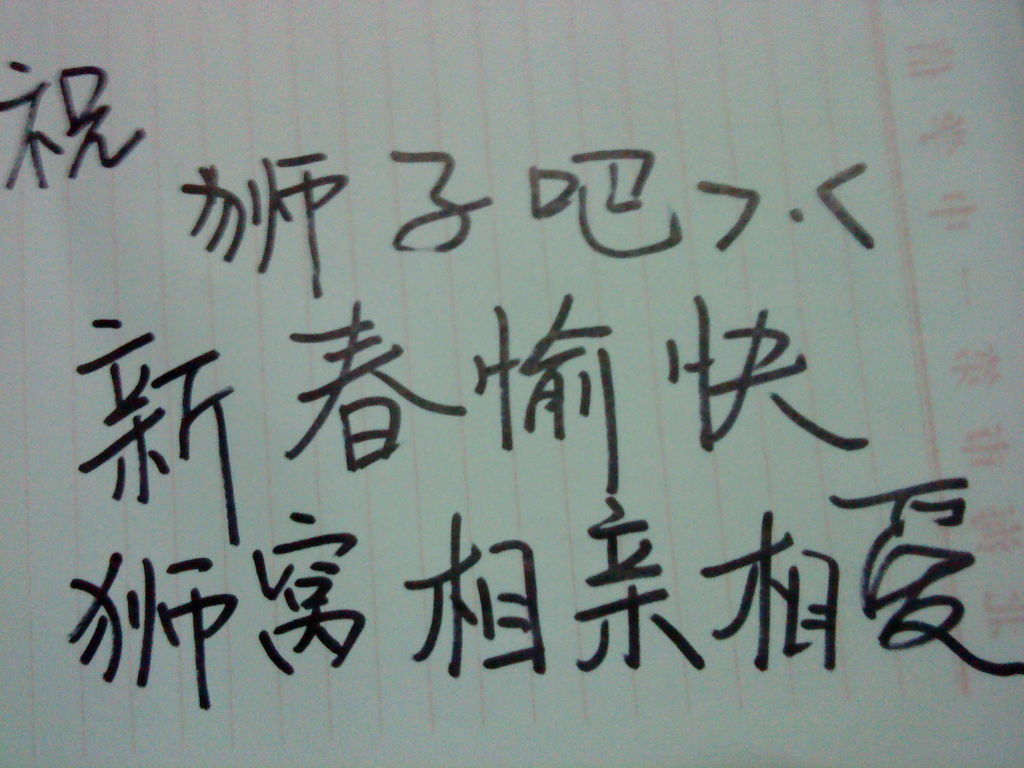 祝
狮子吧>.<
新春愉快
狮窝相亲相爱